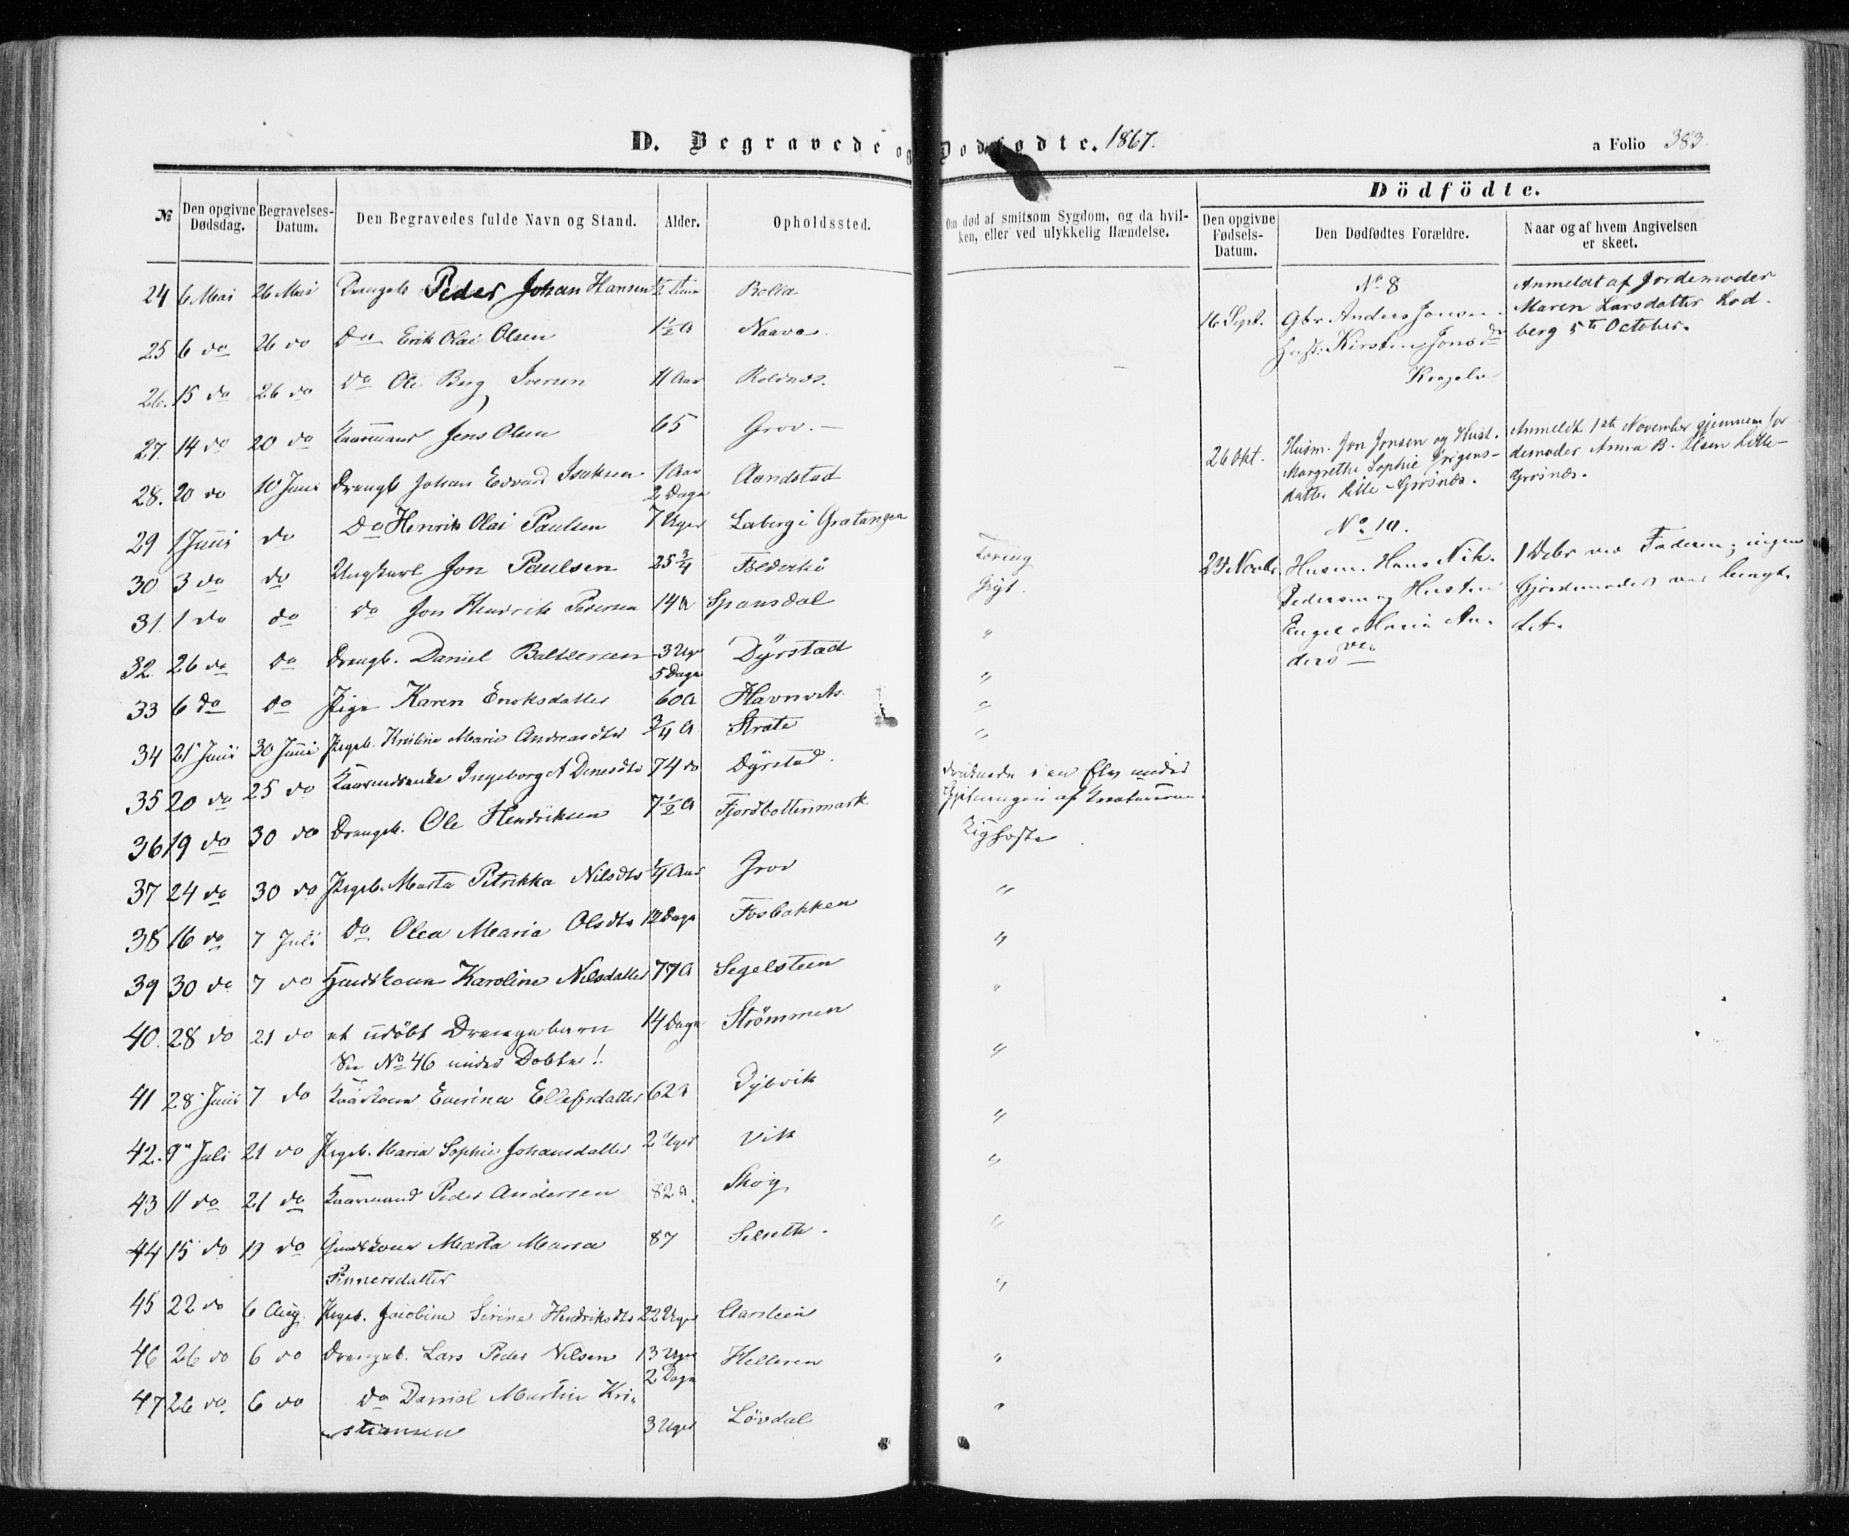 D. Begravede og Dødfødte. 1867.
a Folio 383.
Dödfödte.
№
Den opgivne Dødsdag.
Begravelses-Datum.
Den Begravedes fulde Navn og Stand.
Alder.
Opholdssted.
Om død af smitsom Sygdom, og da hvilken, eller ved ulykkelig Hændelse.
Den opgivne Fødsels-Datum.
Den Dødfødtes Forældre.
Naar og af hvem Angivelsen er skeet.
24 6 Mai 26 Mai Drengeb Peder Johan Hansen ½ Time Bolla
25 6 do 26 do do Erik Olai Olsen 1½ A Naava
26. 15 do 26 do do Ole Berg Iversen 11 Aar Roldnæs.
27. 14 do 20 do Kaarmand Jens Olsen 65 Grov.
28. 20 do 10 Juni Drengb Johan Edvard Isaksen 1 Aar 2 Dage Aandstad
29 1 Juni do do Henrik Olai Paulsen 7 Uger Laberg i Gratangen
30 3 do do Ungkarl Jon Paulsen 25 ¾
31. 1 do do do Jon Hendrik Pedersen 14 A Spansdal
32. 26 do do Drengb. Daniel Baltsersen 3 Uger 5 Dage Dyrstad "
33 6 do do Pige Karen Eriksdatter 60 A Havnvik "
34 21 Juni 30 Juni Pigeb. Kristine Marie Andreasdtr ¾ A Strate "
35 20 do 25 do Kaarenke Ingeborg A Densdtr 74 do Dyrstad. "
36 19 do 30 do Drengeb. Ole Hendriksen 7½ A Fjordbottenmark
druknede i en Elv under
Gjætningen af Kreaturerne.
37 24 do 30 do Pigeb. Marta Petrikka Nilsdtr ¼ Aar Grov
Kighoste
38 16 do 7 Juli do Olea Maria Olsdtr 12 Dage Fosbakken "
39 30 do 7 do Huuskone Karoline Nilsdatter 77 A Segelsteen "
40. 28 do 21 do et udöbt Drengebarn 14 Dage Strømmen "
See No 46 under Döbte!
41 28 Juni 7 do Kaarkone Everina Ellefsdatter 62 A Dybvik "
42. 9 Juli 21 do Pigeb. Maria Sophie Johansdatter 2 Uger Vik "
43 11 do 21 do Kaarmand Peder Andersen 82 A. Skog "
44 15 do 19 do Marta Maria 87 "
Pinnersdatter
45 22 do 6 Aug. Pigeb. Jacobine Sirine Hendriksdtr 22 Uger Aarsteen "
46 26 do 6 do Drengeb. Lars Peder Nilsen 13 Uger 2 Dage Helleren "
47 26 do 6 do do Daniel Martin Kri- "
stiansen 3 Uger Lövdal
No 8
16 Sept. Gbr. Anders Jonsen
Hust. Kirsten Jonsdr
Anmeldt af Jordemoder
Maren Larsdatter Lod-
berg 5te October.
26 Okt. Husm. Jon Jonsen og Hust.
Margrethe Sophie
datter Lille Grösnæs.
Anmeldt 1ste November gjennem Jor
demoder Anna B. Olsen Lille-
Grösnæs.
No 10.
23 Novbr Husm. Hans Nik.
Pedersen og Hustru
Engel Maria An-
ders
1 Debr ved Faderen; ingen
Gjordemoder var benyt-
tet.